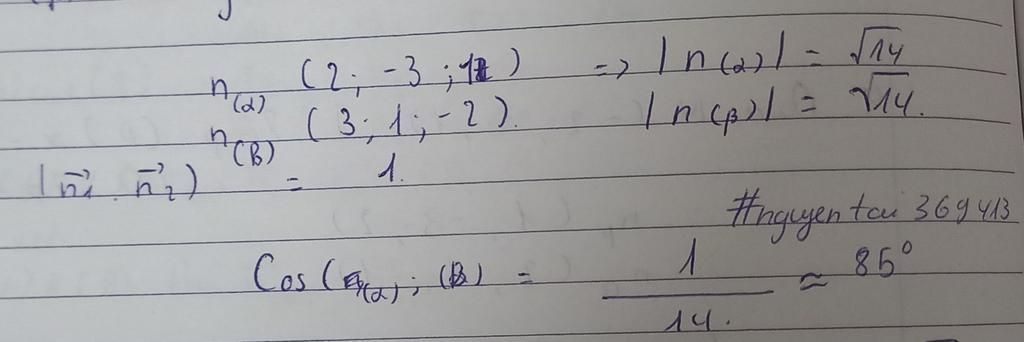 n(α) (2; -3; 1) => |n(α)| = √14
n(B) (3; 1; -2). |n(β)| = √14.
|n⃗1 . n⃗2) = 1.
#nguyen tai 369413
Cos((α); (B) = 1/14. ≈ 85°